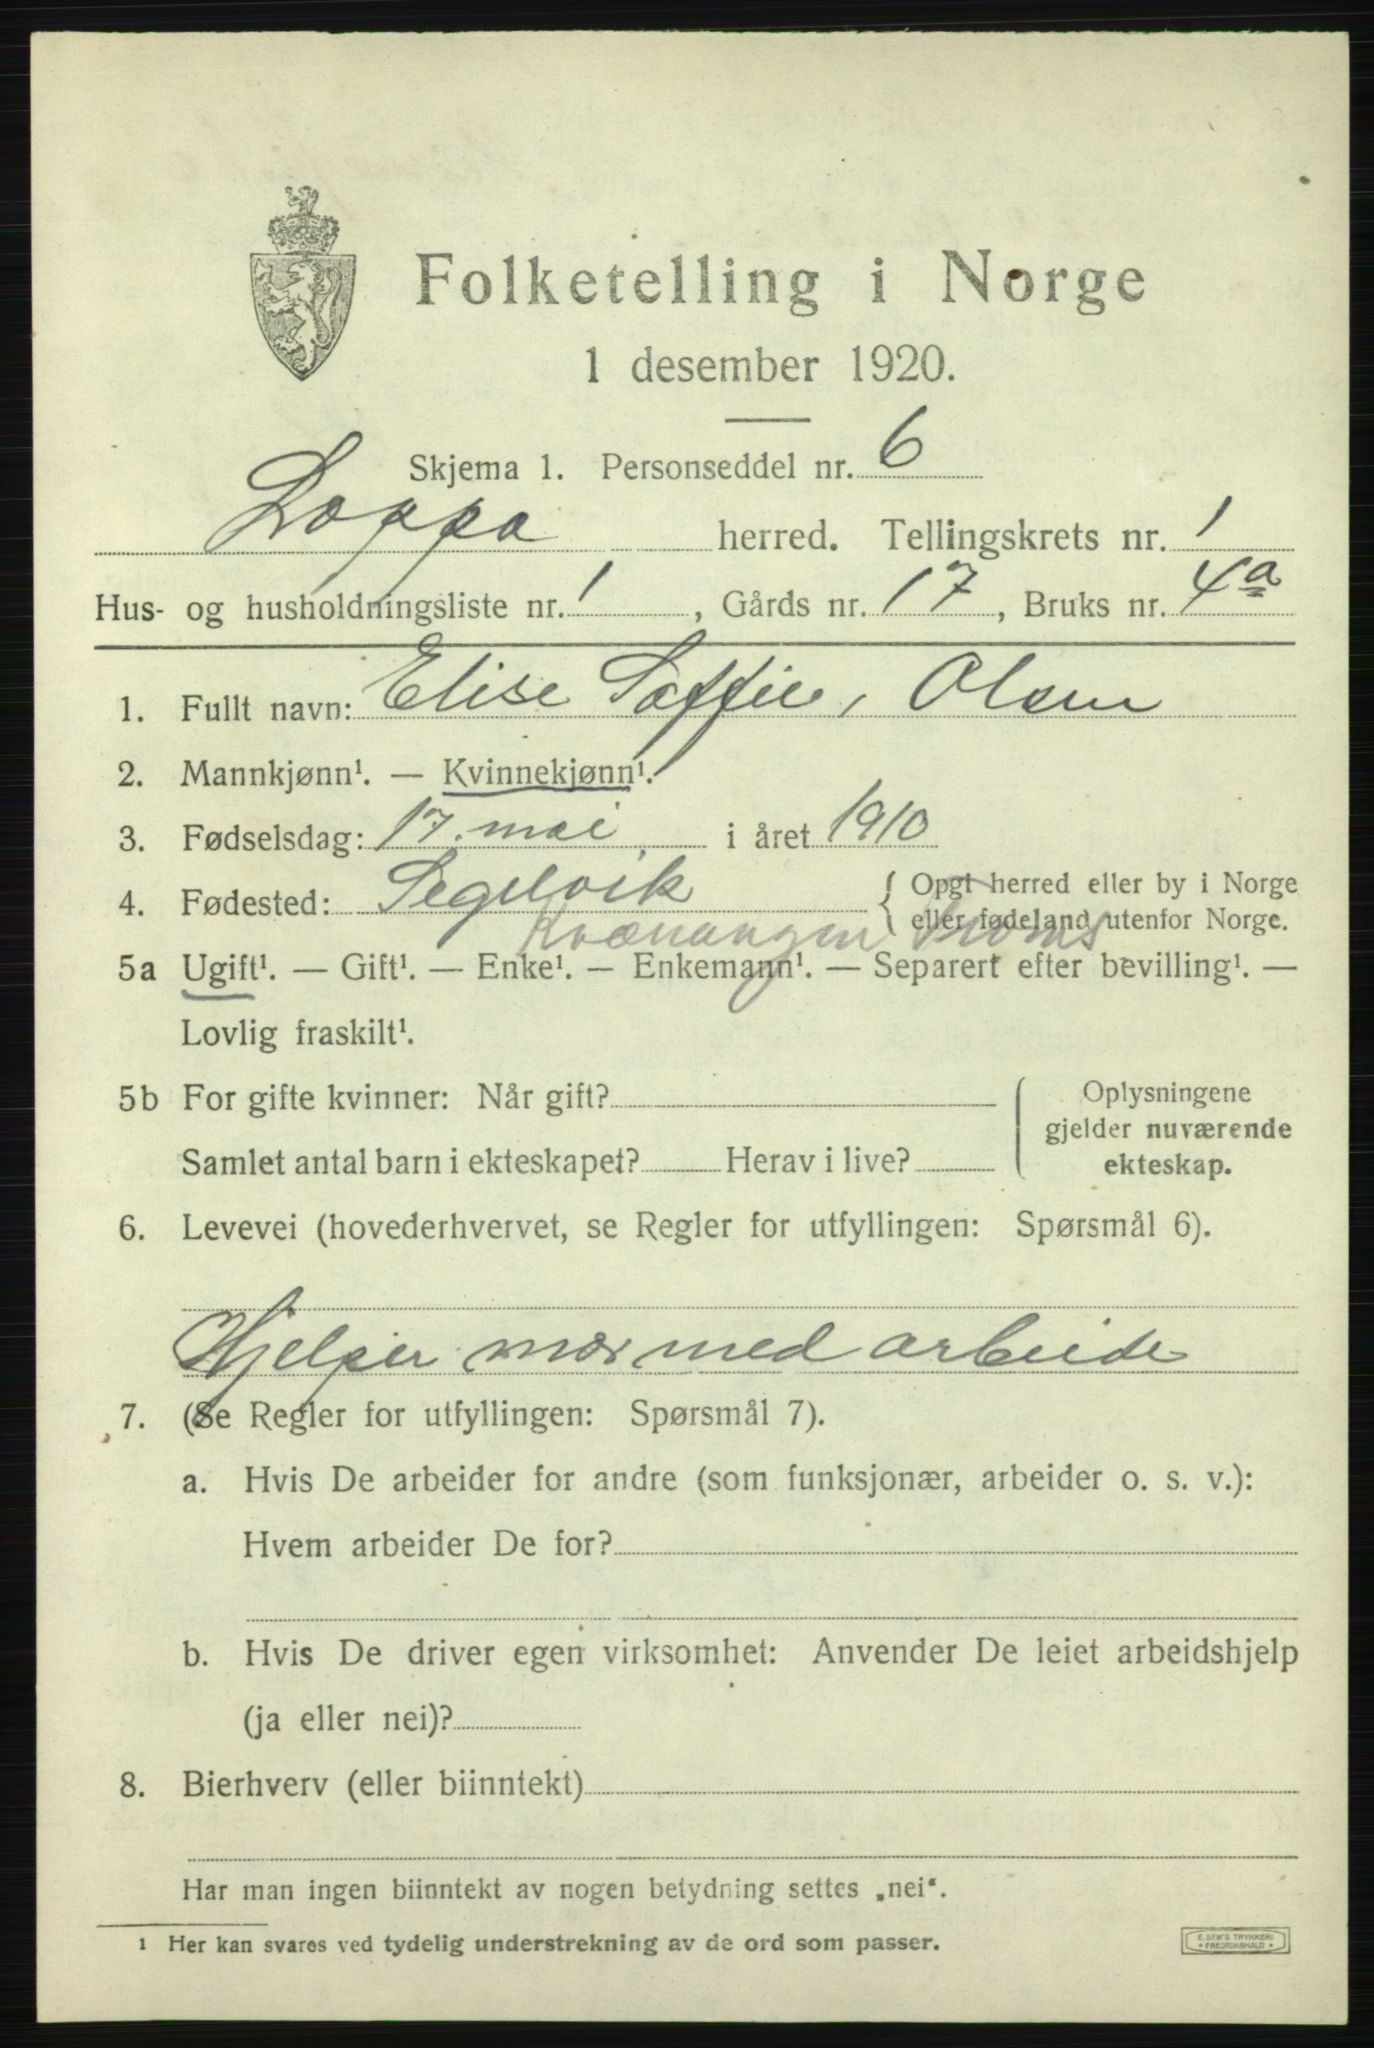 Folketelling i Norge
1 desember 1920.
Skjema 1. Personseddel nr. 6
Loppa herred. Tellingskrets nr. 1
Hus- og husholdningsliste nr. 1, Gårds nr. 17, Bruks nr. 4a
1. Fullt navn: Elise Soffie, Olsen
2. Mannkjønn¹. — Kvinnekjønn¹.
3. Fødselsdag: 17. mai i året 1910
4. Fødested: Segelvik { Opgi herred eller by i Norge
eller fødeland utenfor Norge.
Kvænangen Troms
5a Ugift¹. — Gift¹. — Enke¹. — Enkemann¹. — Separert efter bevilling¹. —
Lovlig fraskilt¹.
5b For gifte kvinner: Når gift? ( Oplysningene
gjelder nuværende
Samlet antal barn i ekteskapet? Herav i live? ekteskap.
6. Levevei (hovederhvervet, se Regler for utfyllingen: Spørsmål 6).
Hjelper mor med arbeide
7. (Se Regler for utfyllingen: Spørsmål 7).
a. Hvis De arbeider for andre (som funksjonær, arbeider o. s. v.):
Hvem arbeider De for?
b. Hvis De driver egen virksomhet: Anvender De leiet arbeidshjelp
(ja eller nei)?
8. Bierhverv (eller biinntekt)
Har man ingen biinntekt av nogen betydning settes „nei“.
¹ Her kan svares ved tydelig understrekning av de ord som passer.
E. SEM'S TRYKKERI
FREDRIKSHALD